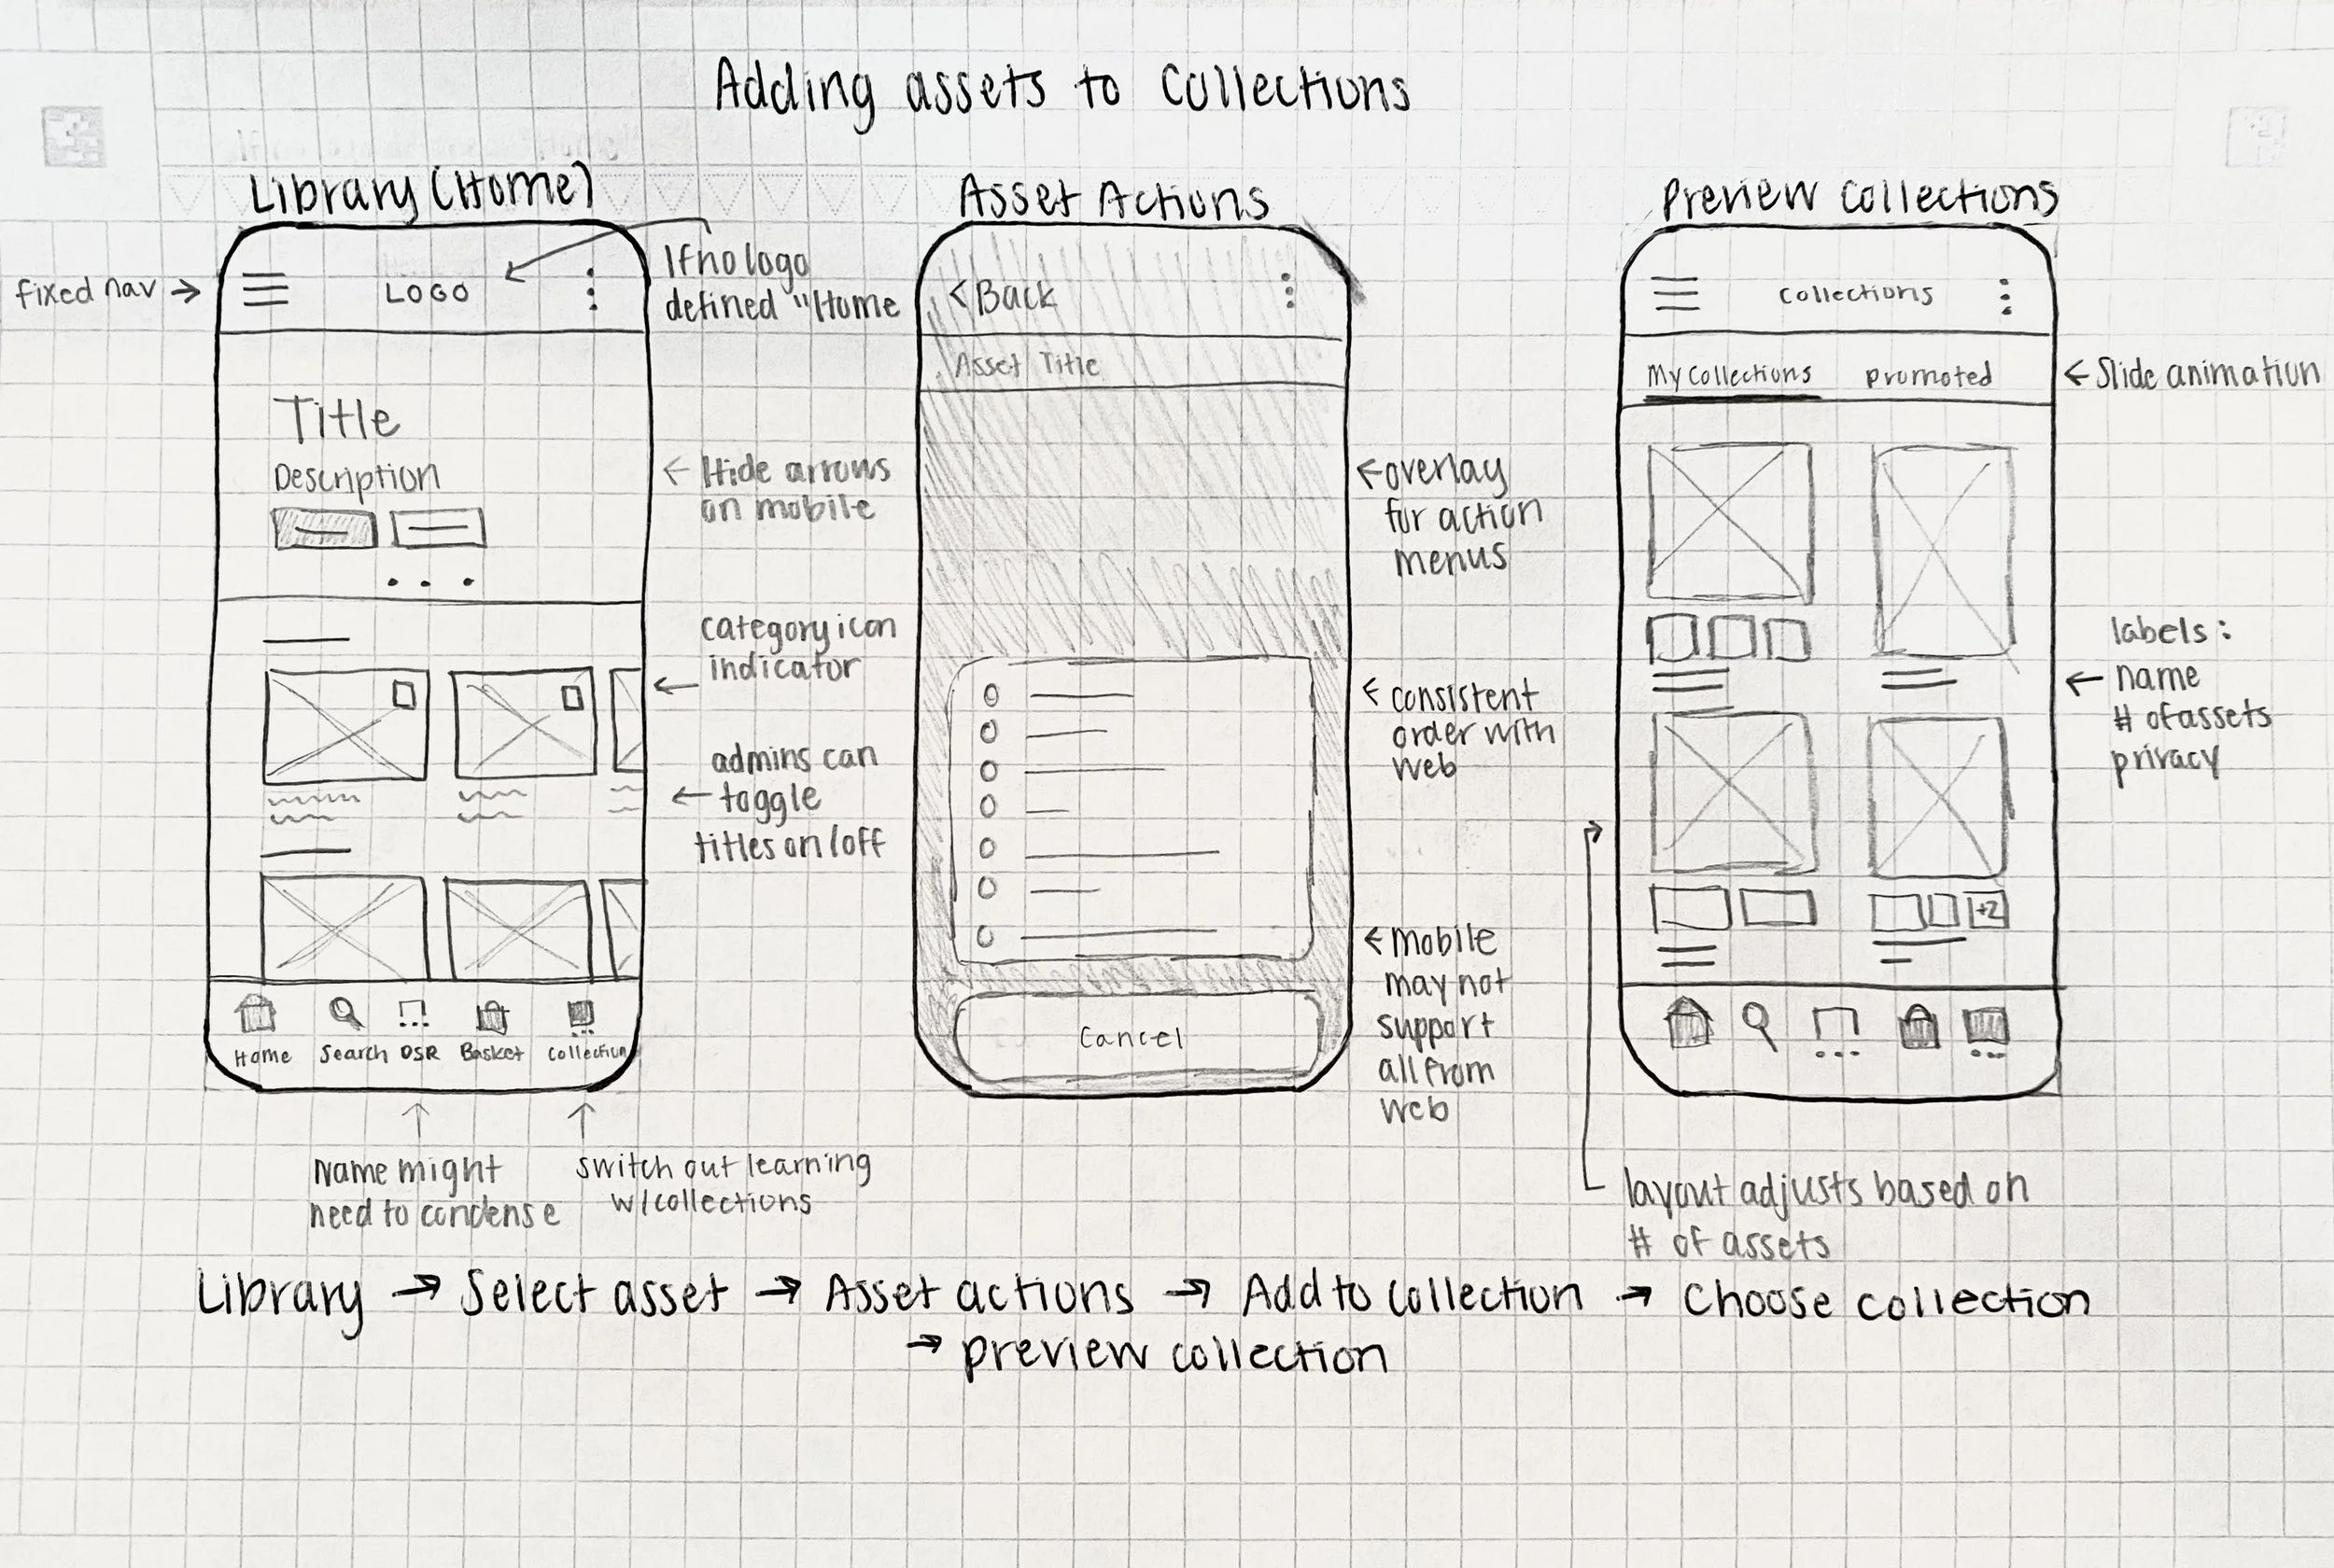 Adding assets to Collections
Library (Home)
fixed nav →
LOGO
If no logo
defined "Home
Title
Description
← Hide arrows
on mobile
category icon
indicator
←
admins can
← toggle
titles on/off
Home Search DSR Basket Collection
Name might
need to condense
switch out learning
w/collections
Asset Actions
< Back
Asset Title
← overlay
for action
menus
← consistent
order with
web
← Mobile
may not
support
all from
web
Cancel
Preview Collections
Collections
My Collections promoted
← Slide animation
labels:
← name
# of assets
privacy
+2
layout adjusts based on
# of assets
Library → Select asset → Asset actions → Add to collection → Choose collection
→ preview collection